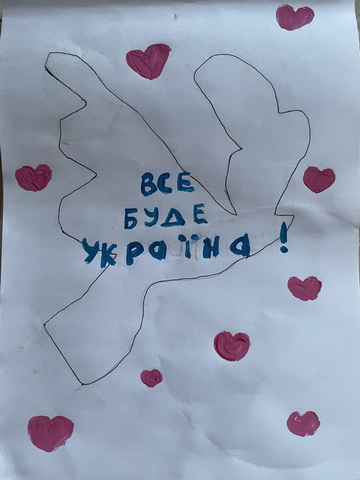 ВСЕ
БУДЕ
УКРАЇНА!